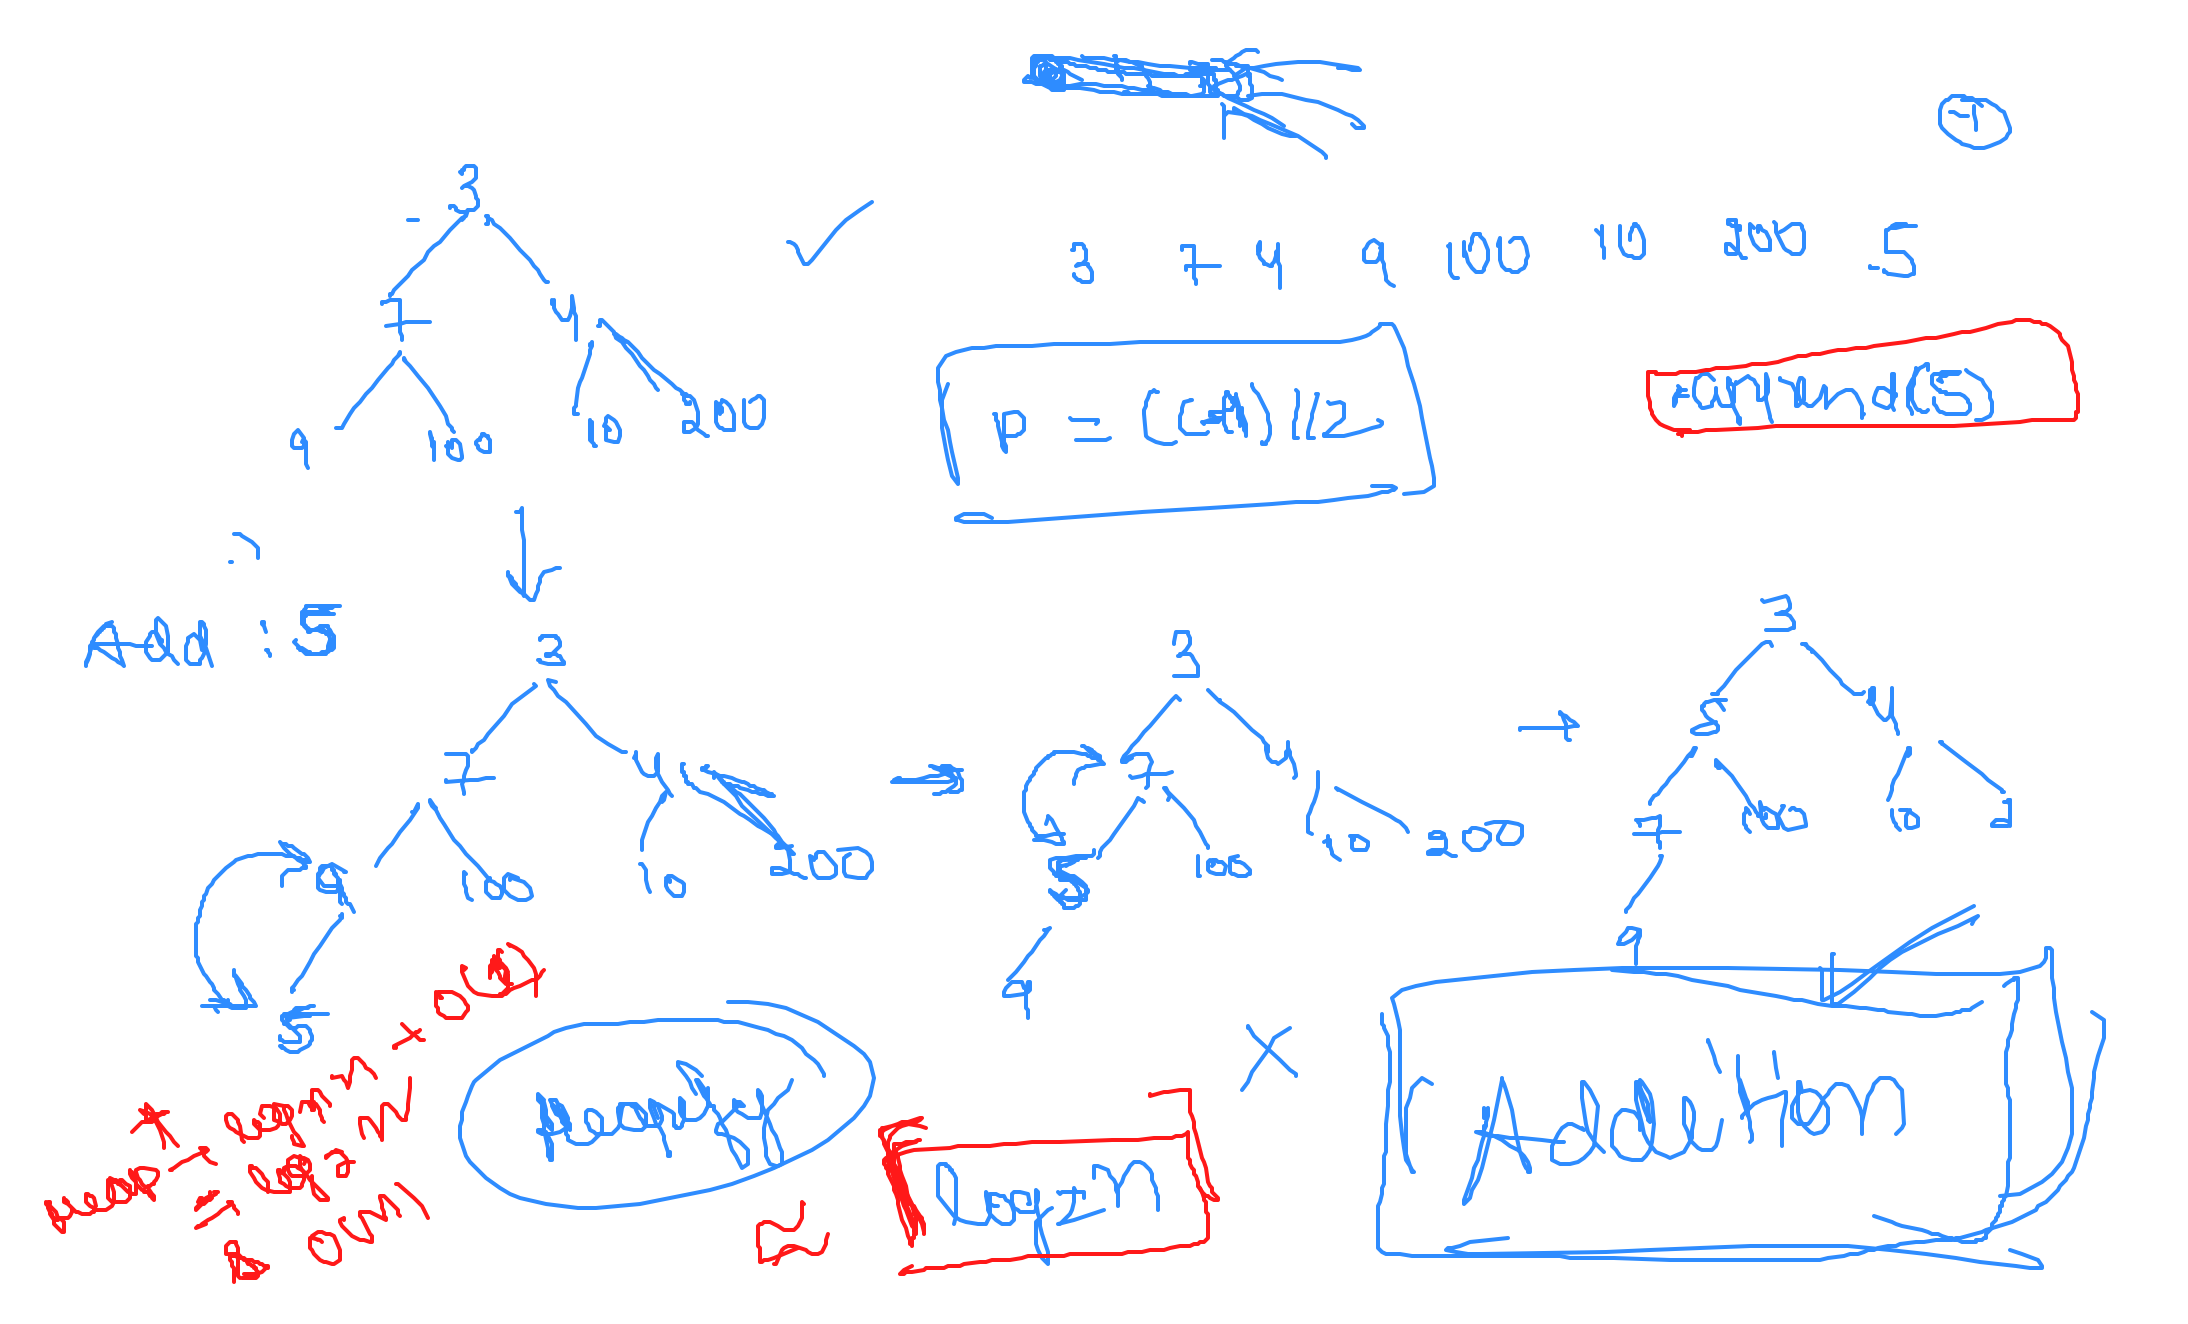 -1
3
7 4
9 100 10 200
3 7 4 9 100 10 200 5
p = (c-1)//2
append(5)
Add : 5
3
7 4
9 100 10 200
5
3
7 4
5 100 10 200
9
3
5 4
7 100 10 2
9
heapify
log2n
Addition